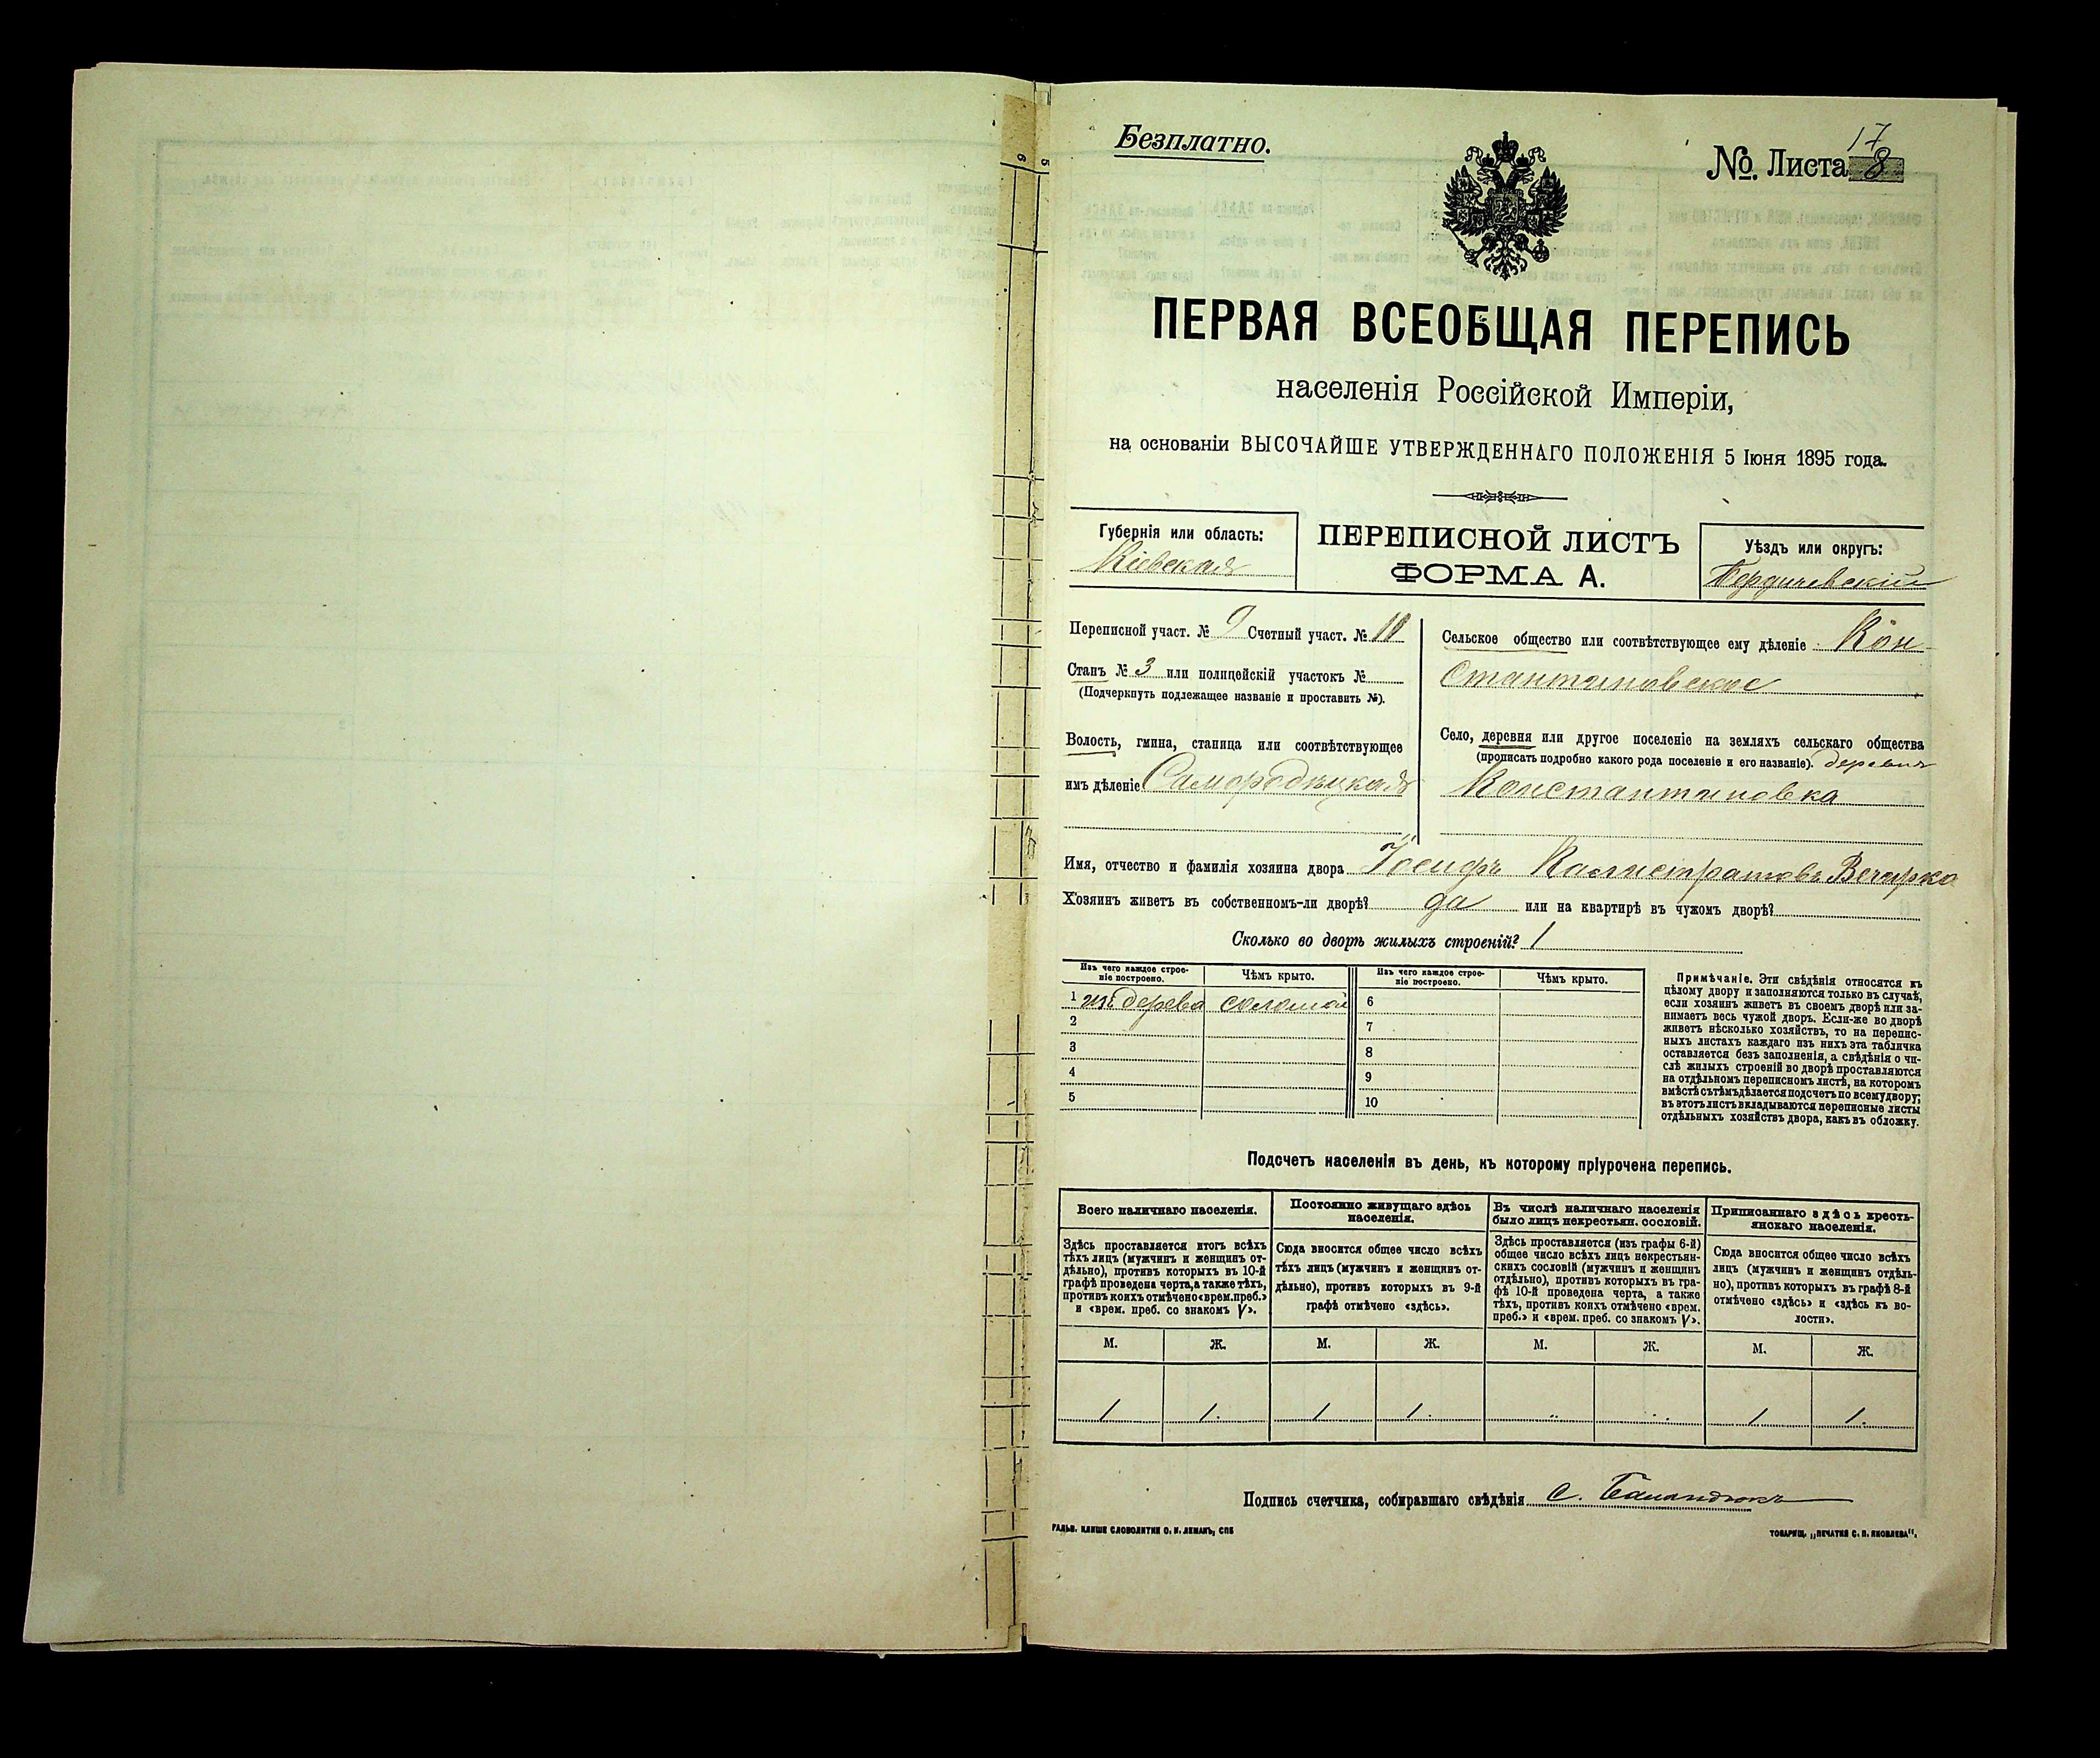 Безплатно.
17
№. Листа 8
ПЕРВАЯ ВСЕОБЩАЯ ПЕРЕПИСЬ
населенія Россійской Имперіи,
на основаніи ВЫСОЧАЙШЕ УТВЕРЖДЕННАГО ПОЛОЖЕНІЯ 5 Іюня 1895 года.
Губернія или область:
Кіевская
ПЕРЕПИСНОЙ ЛИСТЪ
ФОРМА А.
Уѣздъ или округъ:
Бердичевскій
Переписной участ. № 9 Счетный участ. № 10
Станъ № 3 или полицейскій участокъ №
(Подчеркнуть подлежащее названіе и проставить №).
Волость, гмина, станица или соотвѣтствующее
имъ дѣленіе Самородецкая
Сельское общество или соотвѣтствующее ему дѣленіе Кон-
стантиновское
Село, деревня или другое поселеніе на земляхъ сельскаго общества
(прописать подробно какого рода поселеніе и его названіе). деревня
Константиновка
Имя, отчество и фамилія хозяина двора Іосифъ Калистратовъ Вечирко
Хозяинъ живетъ въ собственномъ-ли дворѣ? да или на квартирѣ въ чужомъ дворѣ?
Сколько во дворѣ жилыхъ строеній? 1
Изъ чего каждое строе-
ніе построено.
Чѣмъ крыто.
1 изъ дерева соломой
2
3
4
5
Изъ чего каждое строе-
ніе построено.
Чѣмъ крыто.
6
7
8
9
10
Примѣчаніе. Эти свѣдѣнія относятся къ
цѣлому двору и заполняются только въ случаѣ,
если хозяинъ живетъ въ своемъ дворѣ или за-
нимаетъ весь чужой дворъ. Если-же во дворѣ
живетъ нѣсколько хозяйствъ, то на перепис-
ныхъ листахъ каждаго изъ нихъ эта табличка
оставляется безъ заполненія, а свѣдѣнія о чи-
слѣ жилыхъ строеній во дворѣ проставляются
на отдѣльномъ переписномъ листѣ, на которомъ
вмѣстѣ съ тѣмъ дѣлается подсчетъ по всему двору;
въ этотъ листъ вкладываются переписные листы
отдѣльныхъ хозяйствъ двора, какъ въ обложку.
Подсчетъ населенія въ день, къ которому пріурочена перепись.
Всего наличнаго населенія.
Здѣсь проставляется итогъ всѣхъ
тѣхъ лицъ (мужчинъ и женщинъ от-
дѣльно), противъ которыхъ въ 10-й
графѣ проведена черта, а также тѣхъ,
противъ коихъ отмѣчено «врем. преб.»
и «врем. преб. со знакомъ V».
М. Ж.
1 1.
Постоянно живущаго здѣсь
населенія.
Сюда вносится общее число всѣхъ
тѣхъ лицъ (мужчинъ и женщинъ от-
дѣльно), противъ которыхъ въ 9-й
графѣ отмѣчено «здѣсь».
М. Ж.
1 1.
Въ числѣ наличнаго населенія
было лицъ некрестьян. сословій.
Здѣсь проставляется (изъ графы 6-й)
общее число всѣхъ лицъ некрестьян-
скихъ сословій (мужчинъ и женщинъ
отдѣльно), противъ которыхъ въ гра-
фѣ 10-й проведена черта, а также
тѣхъ, противъ коихъ отмѣчено «врем.
преб.» и «врем. преб. со знакомъ V».
М. Ж.
Приписаннаго здѣсь кресть-
янскаго населенія.
Сюда вносится общее число всѣхъ
лицъ (мужчинъ и женщинъ отдѣль-
но), противъ которыхъ въ графѣ 8-й
отмѣчено «здѣсь» и «здѣсь къ во-
лости».
М. Ж.
1 1.
Подпись счетчика, собиравшаго свѣдѣнія С. Баландюкъ
ГАЛЬВ. КЛИШЕ СЛОВОЛИТНИ О. И. ЛЕМАНЪ, СПБ
ТОВАРИЩ. „ПЕЧАТНЯ С. П. ЯКОВЛЕВА“.